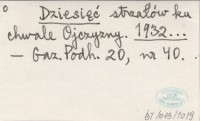 Dziesięć strzałów ku
chwale Ojczyzny. 1932...
— Gaz. Podh. 20, nr 40.